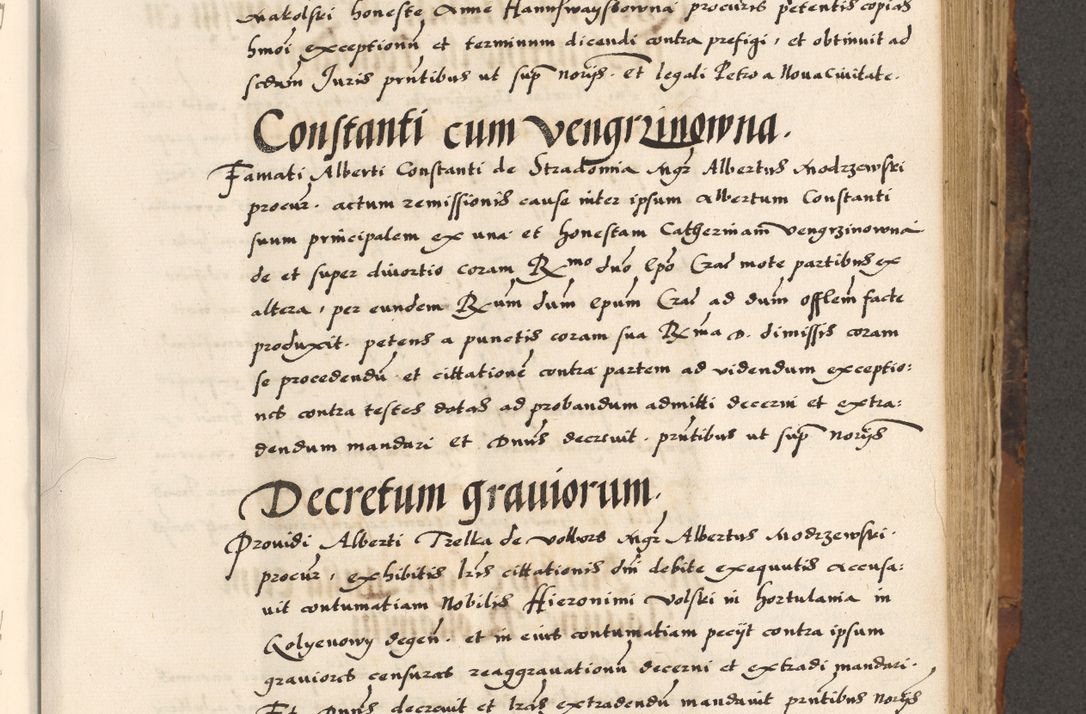 Makolski honeste Anne Hannswaysbowna procuris petentis copias
hmoi exceptionu et terminum dicendi contra prefigi, et obtinuit ad
scdam Juris prntibus ut sup norijs. Et legali Petro a Novacivitate.
Constanti cum Vengrzinowna.
Famati Alberti Constanti de Stradomia Mgr Albertus Modrzewski
procur. actum remissionis cause inter ipsum Albertum Constanti
suum principalem ex una et honestam Catherinam Vengrzinowna
de et super divortio coram Rmo dno Epo Crac mote partibus ex
altera, per eundem Rum dum Epum Crac ad dum offlem facte
produxit. petens a punctis coram sua Rma D. dimissis coram
se procedendu et cittatione contra partem ad videndum exceptio:
nes contra testes dotas ad probandum admitti decerni et extra:
dendum mandari Et Dnus decrevit. prntibus ut sup norijs
Decretum graviorum.
Providi Alberti Trelka de Volbors Mgr Albertus Modrzewski.
procur, exhibitis lris cittationis dni debite exequutis accusa:
vit contumatiam Nobilis Hieronimi Volski in hortulania in
Kolyenowy degen. et in eius contumatiam pecijt contra ipsum
graviores censuras reaggravationu decerni et extradi mandari.
Et Dnus decrevit et lras extradendu mandavit prntibus norijs